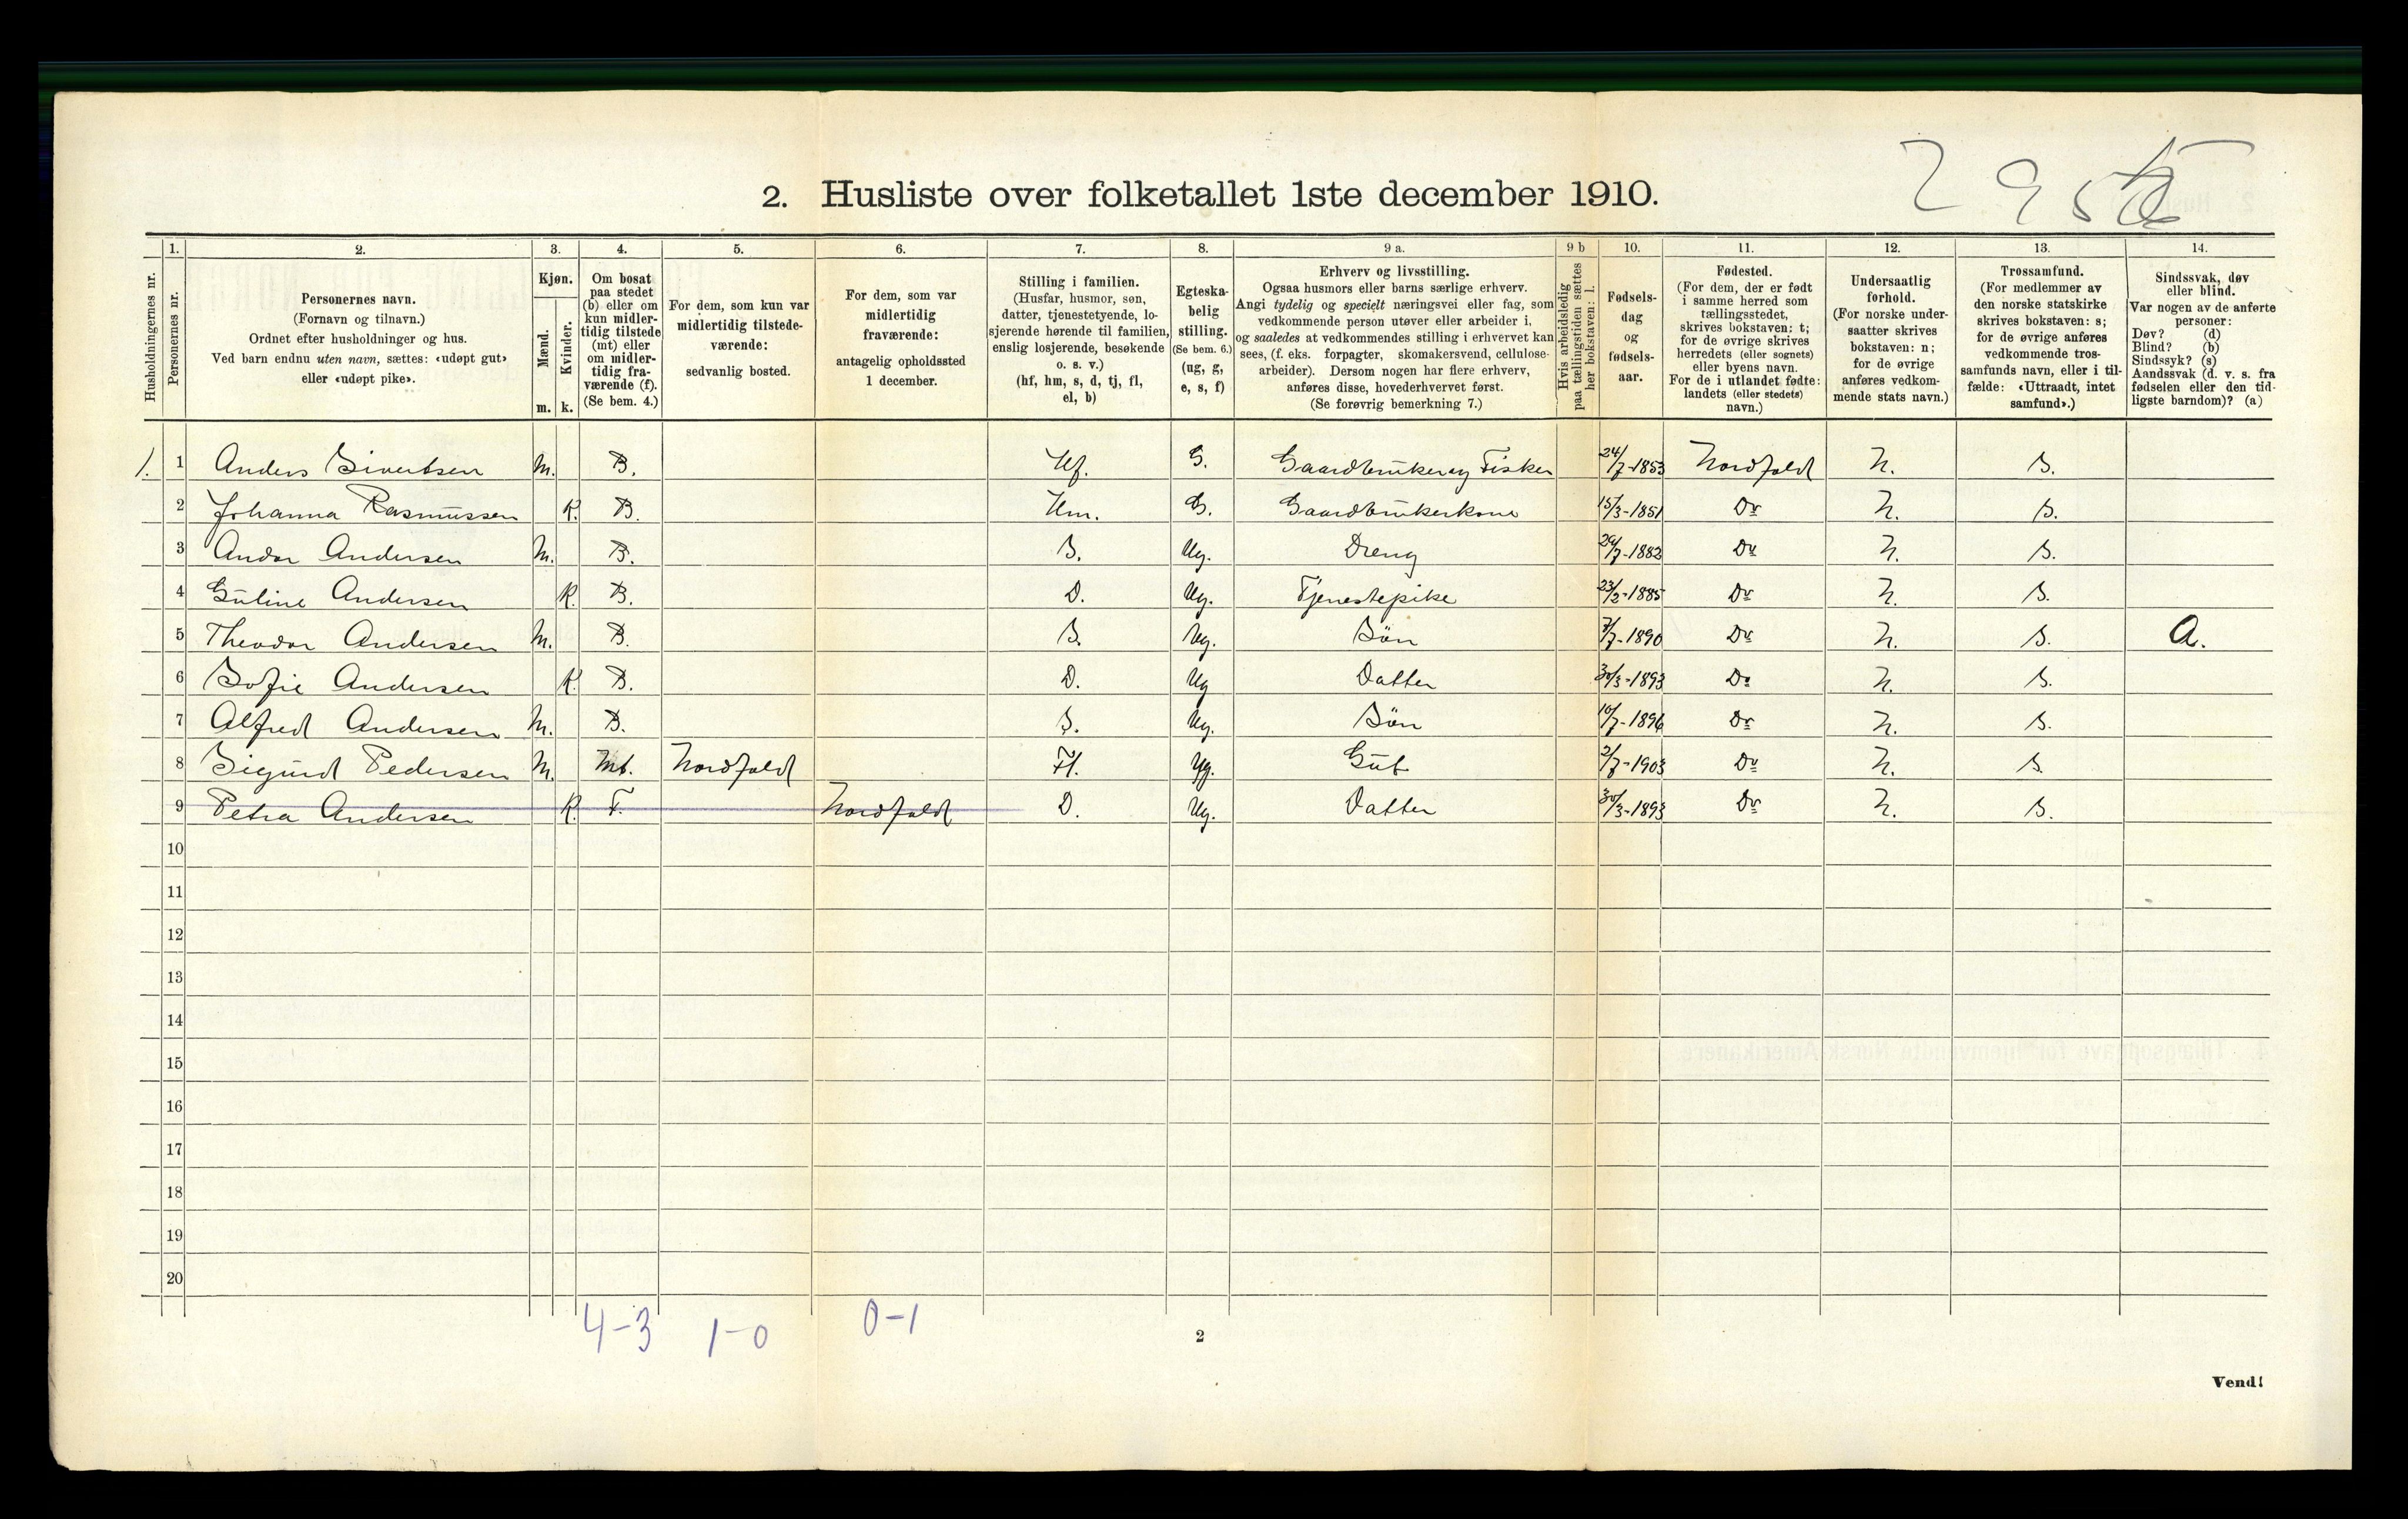 2. Husliste over folketallet 1ste december 1910.
1. 2. 3. 4. 5. 6. 7. 8. 9 a. 9 b 10. 11. 12. 13. 14.
Husholdningernes nr.
Personernes nr.
Personernes navn.
(Fornavn og tilnavn.)
Ordnet efter husholdninger og hus.
Ved barn endnu uten navn, sættes: «udøpt gut»
eller «udøpt pike».
Kjøn.
Mænd.
Kvinder.
m. k.
Om bosat
paa stedet
(b) eller om
kun midler-
tidig tilstede
(mt) eller
om midler-
tidig fra-
værende (f).
(Se bem. 4.)
For dem, som kun var
midlertidig tilstede-
værende:
sedvanlig bosted.
For dem, som var
midlertidig
fraværende:
antagelig opholdssted
1 december.
Stilling i familien.
(Husfar, husmor, søn,
datter, tjenestetyende, lo-
sjerende hørende til familien,
enslig losjerende, besøkende
o. s. v.)
(hf, hm, s, d, tj, fl,
el, b)
Egteska-
belig
stilling.
(Se bem. 6.)
(ug, g,
e, s, f)
Erhverv og livsstilling.
Ogsaa husmors eller barns særlige erhverv.
Angi tydelig og specielt næringsvei eller fag, som
vedkommende person utøver eller arbeider i,
og saaledes at vedkommendes stilling i erhvervet kan
sees, (f. eks. forpagter, skomakersvend, cellulose-
arbeider). Dersom nogen har flere erhverv,
anføres disse, hovederhvervet først.
(Se forøvrig bemerkning 7.)
Hvis arbeidsledig
paa tællingstiden sættes
her bokstaven: l.
Fødsels-
dag
og
fødsels-
aar.
Fødested.
(For dem, der er født
i samme herred som
tællingsstedet,
skrives bokstaven: t;
for de øvrige skrives
herredets (eller sognets)
eller byens navn.
For de i utlandet fødte:
landets (eller stedets)
navn.)
Undersaatlig
forhold.
(For norske under-
saatter skrives
bokstaven: n;
for de øvrige
anføres vedkom-
mende stats navn.)
Trossamfund.
(For medlemmer av
den norske statskirke
skrives bokstaven: s;
for de øvrige anføres
vedkommende tros-
samfunds navn, eller i til-
fælde: «Uttraadt, intet
samfund».)
Sindssvak, døv
eller blind.
Var nogen av de anførte
personer:
Døv? (d)
Blind? (b)
Sindssyk? (s)
Aandssvak (d. v. s. fra
fødselen eller den tid-
ligste barndom)? (a)
1. 1 Anders Sivertsen M. B. Hf. G. Gaardbruker og Fisker 24/7-1853 Nordfold N. S.
2 Johanna Rasmussen K. B. Hm. G. Gaardbrukerkone 15/3-1851 Do N. S.
3 Andor Andersen M. B. S. Ug. Dreng 29/7-1882 Do N. S.
4 Guline Andersen K. B. D. Ug. Tjenestepike 23/2-1885 Do N. S.
5 Theodor Andersen M. B. S. Ug. Søn 7/7-1890 Do N. S. A.
6 Sofie Andersen K. B. D. Ug Datter 30/3-1893 Do N. S.
7 Alfred Andersen M. B. S. Ug. Søn 10/7-1896 Do N. S.
8 Sigurd Pedersen M. Mt. Nordfold Fl. Ug. Gut 2/7-1903 Do N. S.
9 Petra Andersen K. F. Nordfold D. Ug. Datter 30/3-1893 Do N. S.
10
11
12
13
14
15
16
17
18
19
20
4-3 1-0 0-1
2
Vend!